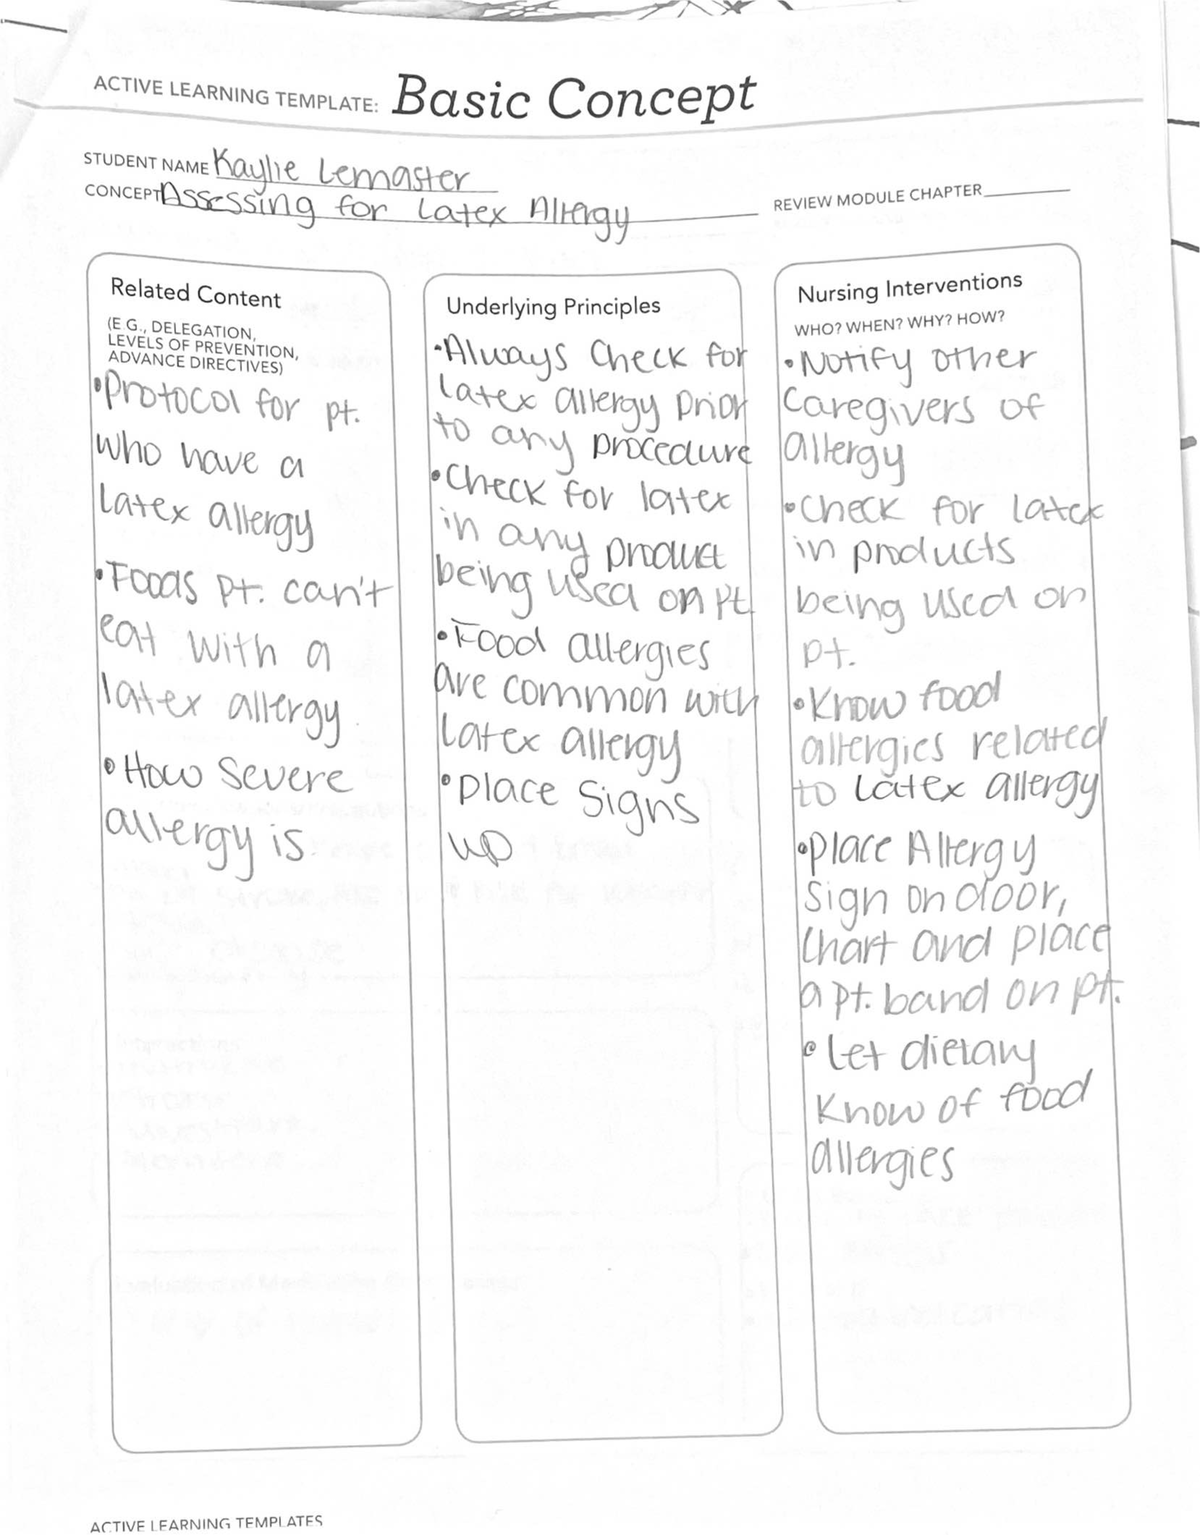 ACTIVE LEARNING TEMPLATE: Basic Concept
STUDENT NAME Kaylie Lemaster
CONCEPT Assessing for Latex Allergy
REVIEW MODULE CHAPTER
Related Content
(E.G., DELEGATION,
LEVELS OF PREVENTION,
ADVANCE DIRECTIVES)
•Protocol for pt.
who have a
latex allergy
•Foods pt. can't
eat with a
latex allergy.
•How severe
allergy is.
Underlying Principles
•Always Check for
latex allergy prior
to any procedure
•Check for latex
in any product
being used on pt.
•Food allergies
are common with
Latex allergy
•Place Signs
up
Nursing Interventions
WHO? WHEN? WHY? HOW?
•Notify other
Caregivers of
allergy
•Check for latex
in products
being used on
pt.
•Know food
allergies related
to Latex allergy
•Place Allergy
sign on door,
Chart and place
a pt. band on pt.
•Let dietary
Know of food
allergies
ACTIVE LEARNING TEMPLATES